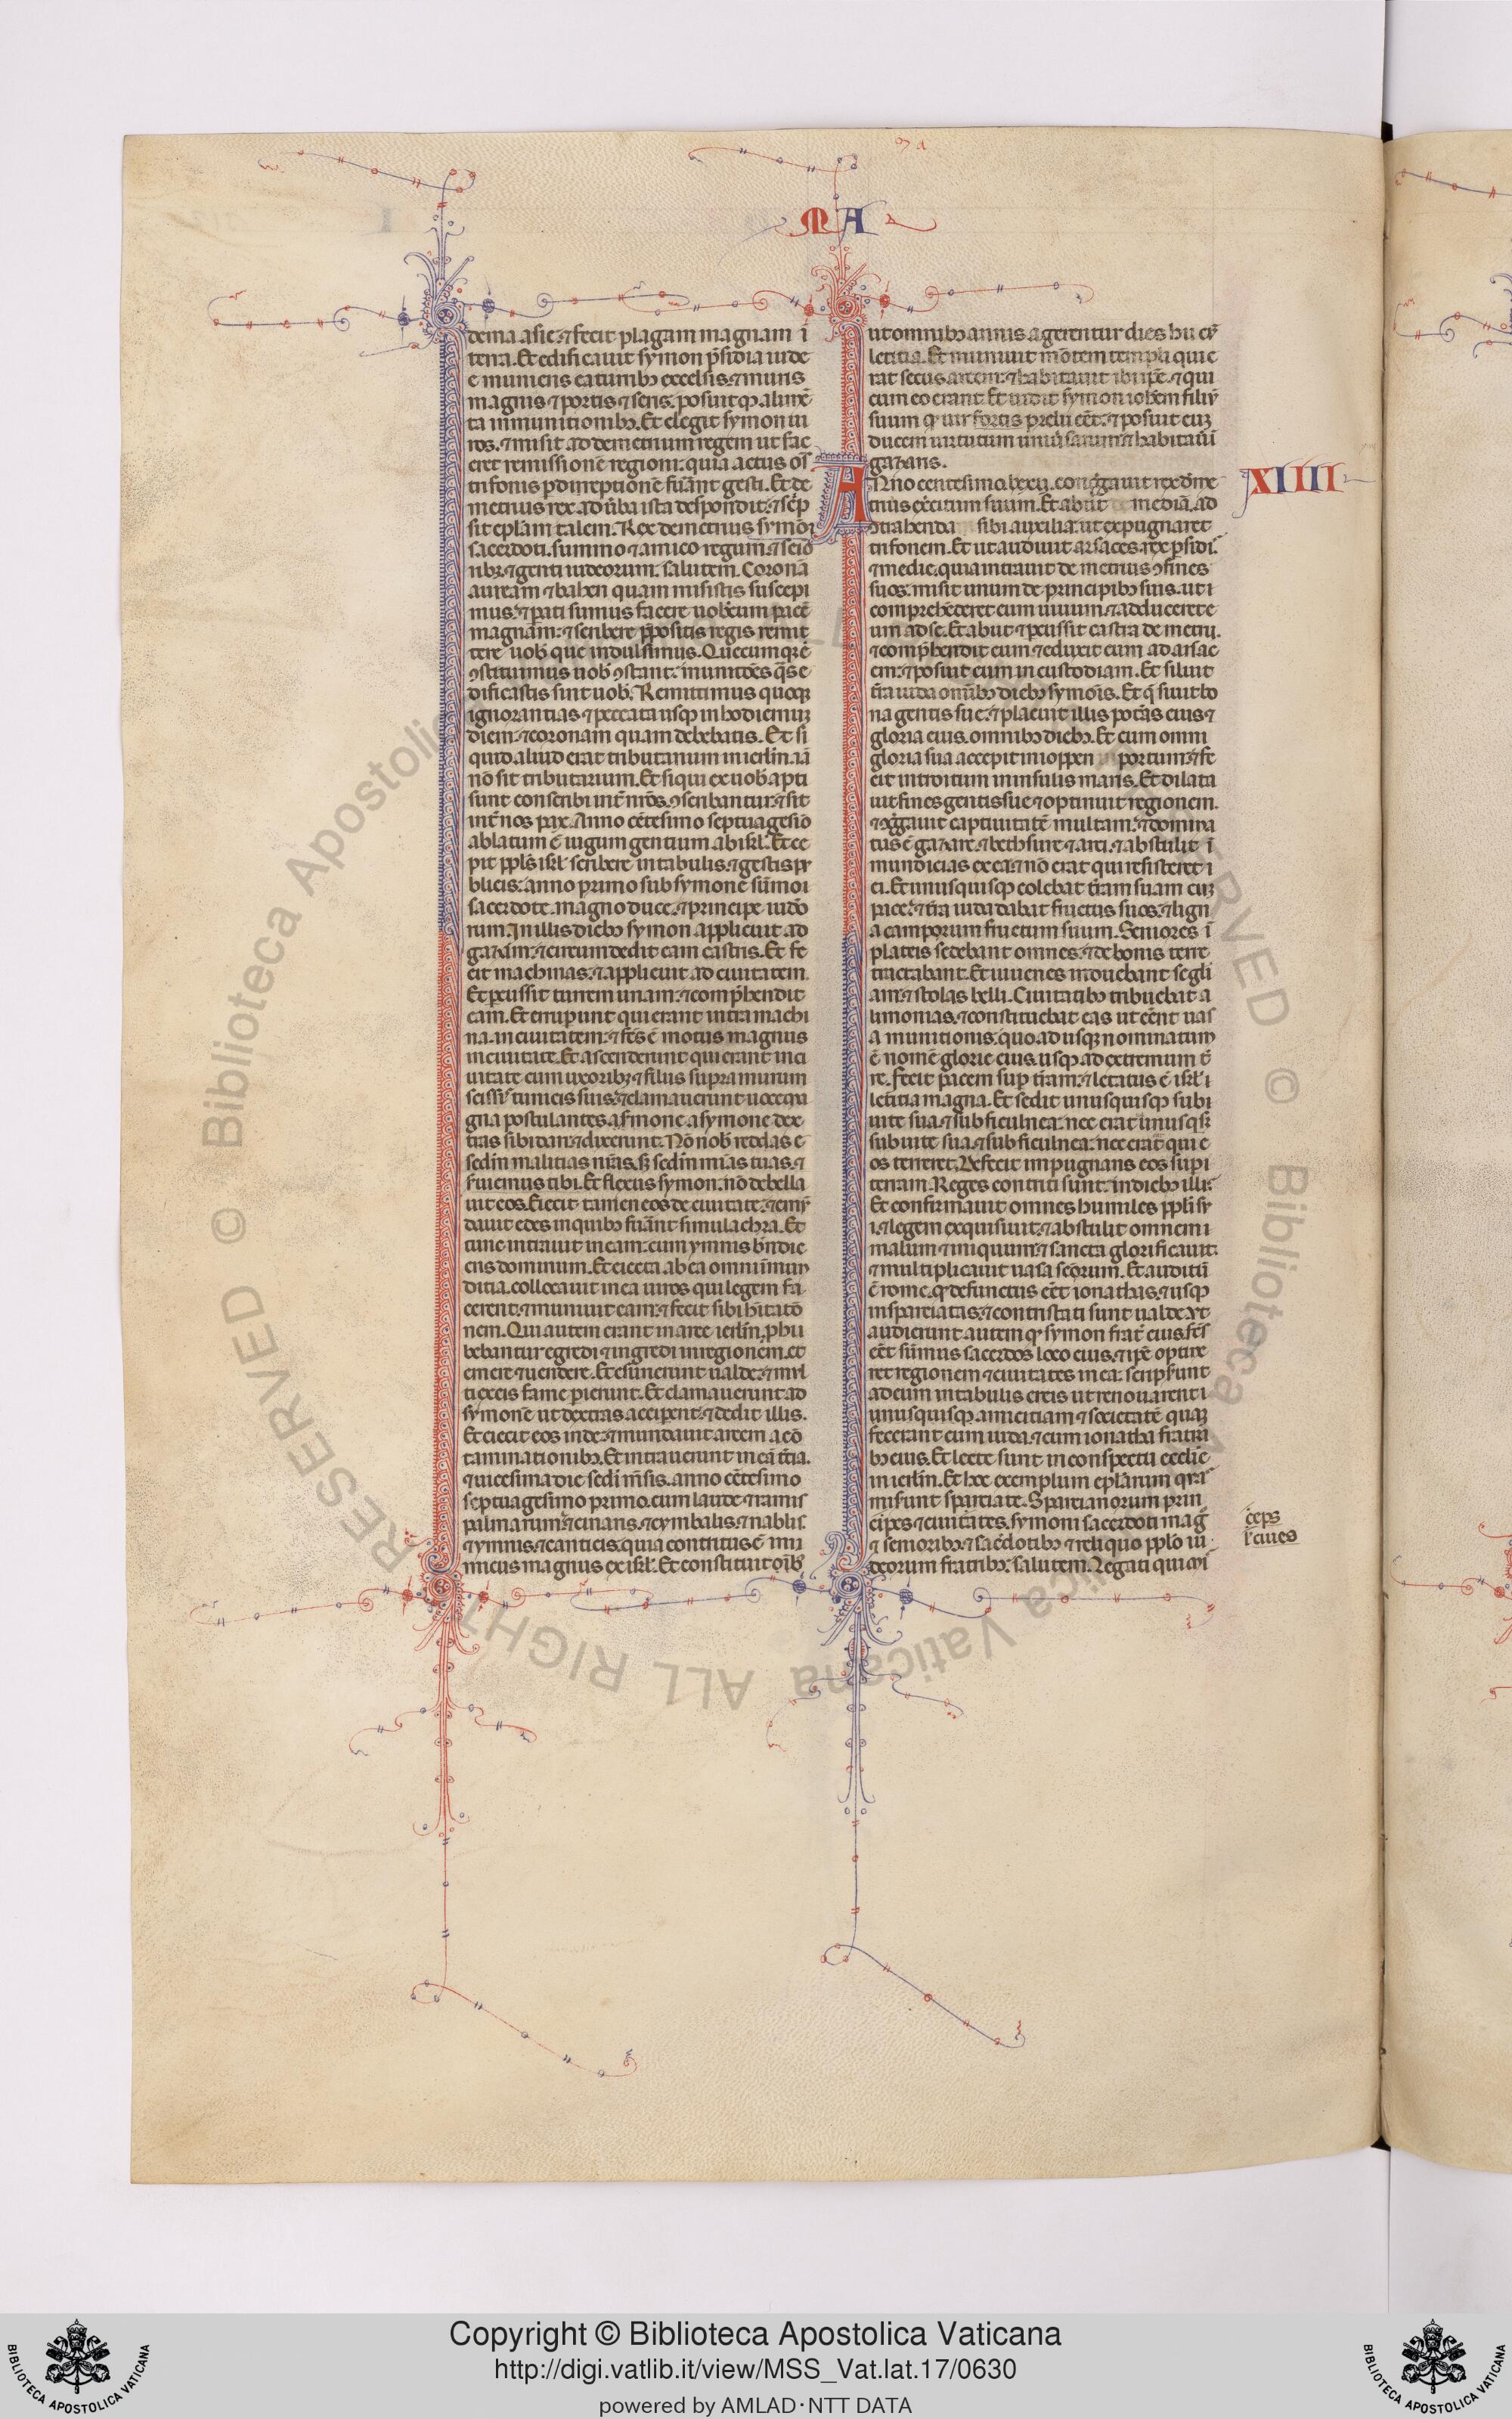 MA
dema asie. ⁊ fecit plagam magnam ĩ
terra. Et edificauit symon p̃sidia iude
e muniens ea turribꝫ excelsis. ⁊ muris
magnis ⁊ portis ⁊ seris. posuit qꝫ alimẽ
ta in munitionibꝫ. Et elegit symon ui
ros. ⁊ misit ad demetrium regem ut fac
eret remissionẽ regioni: quia actus oĩs
trifonis ꝑ direptionẽ fuãnt gesti. Et de
metrius rex ad ũba ista respondit: ⁊ sc̃p
sit epl̃am talem. Rex demetrius symoni
sacerdoti summo ⁊ amico regum: ⁊ senio
ribꝫ ⁊ genti iudeorum. salutem. Coronã
auream ⁊ bahen quam misistis suscepi
mus: ⁊ pati sumus facere uobcum pacẽ
magnam: ⁊ scribere p̃positis regis remit
tere uob̃ que indulsimus. Quecumqꝫ ẽ
ꝯstituimus uob̃ ꝯstant: munitões q̃s e
dificastis sint uob̃. Remittimus quoqꝫ
ignorantias ⁊ peccata usqꝫ in hodiernuꝫ
diem. ⁊ coronam quam debebatis. Et si
quid aliud erat tributarium in ierlm̃. iã
nõ sit tributarium. Et si qui ex uob̃ apti
sunt conscribi int̃ nr̃os. ꝯscribantur. ⁊ sit
int̃ nos pax. Anno cẽtesimo septuagesiõ
ablatum ẽ iugum gentium ab isrl̃. Et ce
pit ppl̃s isrl̃ scribere in tabulis. ⁊ gestis pu
blicis: anno primo sub symone sũmo
sacerdote. magno duce. ⁊ principe iudeo
rum. In illis diebꝫ symon applicuit ad
gazam: ⁊ circumdedit eam castris. Et fe
cit machinas. ⁊ applicuit ad ciuitatem.
Et ꝑcussit turrem unam: ⁊ comp̃hendit
eam. Et eruperunt qui erant intra machi
na. in ciuitatem: ⁊ fc̃s ẽ motus magnus
in ciuitate. Et ascenderunt qui erant in ci
uitate cum uxoribꝫ ⁊ filiis supra murum
scissis tunicis suis. ⁊ clamauerunt uoce ma
gna postulantes a symone dex
tras sibi dari: ⁊ dixerunt. Nõ nob̃ reddas s
scdm̃ malitias nr̃as. sꝫ scdm̃ mias tuas. ⁊
seruiemus tibi. Et flexus symon: nõ debella
uit eos. Eiecit tamen eos de ciuitate. ⁊ emũ
dauit edes in quibꝫ fuãnt simulachra. Et
tunc intrauit in eam: cum ymnis bñdic
ens dominum. Et eiecta ab ea omni immun
ditia. collocauit in ea uiros qui legem fa
cerent: ⁊ muniuit eam: ⁊ fecit sibi hĩtatõ
nem. Qui autem erant in arce ierlm̃. ꝓhi
bebantur egredi ⁊ ingredi in regionem. et
emere ⁊ uendere. Et esurierunt ualde: ⁊ mul
ti ex eis fame ꝑierunt. Et clamauerunt ad
symonẽ ut dextras acciperent: ⁊ dedit illis.
Et eiecit eos inde: ⁊ mundauit arcem a cõ
taminationibꝫ. Et intrauerunt in eã tr̃tia.
⁊ uicesima die scdi m̃sis. anno cẽtesimo
septuagesimo primo. cum laude ⁊ ramis
palmarum. ⁊ cinaris. ⁊ cymbalis. ⁊ nablis.
⁊ ymnis. ⁊ canticis. quia contritus ẽ ini
micus magnus ex isrl̃. Et constituit oĩbꝫ
ut omnibꝫ annis agerentur dies hii cũ
letitia. Et muniuit mõtem templi qui e
rat secus arcem: ⁊ habitauit ibi ip̃e. ⁊ qui
cum eo erant. Et uidit symon iohẽm filiũ
suum ꝙ uir fortis prelii eẽt. ⁊ posuit euꝫ
ducem uirtutum uniũsarum. ⁊ habitauit
gazaris.
XIIII
Anno centesimo lxxii. congregauit rex deme
trius ex̃citum suum. Et abiit mediã. ad
ꝯtrahenda sibi auxilia: ut expugnaret
trifonem. Et ut audiuit arsaces rex ꝑsidis
⁊ medie. quia intrauit demetrius ꝯfines
suos: misit unum de principibꝫ suis. uti
comprehẽderet eum uiuum. ⁊ adduceret e
um ad se. Et abiit ⁊ ꝑcussit castra demetrii.
⁊ comp̃hendit eum ⁊ eduxit eum ad arsac
em: ⁊ posuit eum in custodiam. Et siluit
tr̃a iuda omĩbꝫ diebꝫ symoĩs. Et q̃siuit bo
na gentis sue. ⁊ placuit illis potãs eius ⁊
gloria eius. omnibꝫ diebꝫ. Et cum omni
gloria sua accepit in ioppen portum. ⁊ fe
cit introitum in insulis maris. Et dilata
uit fines gentis sue ⁊ optinuit regionem.
⁊ ꝯgregauit captiuitatẽ multam. ⁊ domina
tus ẽ gazare. ⁊ bethsure ⁊ arci. ⁊ abstulit ĩ
mundicias ex ea: ⁊ nõ erat qui resisteret
ei. Et unusquisqꝫ colebat tr̃am suam cuꝫ
pace. ⁊ tr̃a iuda dabat fructus suos. ⁊ lign
a camporum fructum suum. Seniores ĩ
plateis sedebant omnes. ⁊ de bonis terre
tractabant. Et iuuenes induebant se glĩ
am: ⁊ stolas belli. Ciuitatibꝫ tribuebat a
limonias. ⁊ constituebat eas ut eẽnt uas
a munitionis. quoadusqꝫ nominatum
ẽ nomẽ glorie eius. usqꝫ ad extremum t̃
re. Fecit pacem sup tr̃am: ⁊ letatus ẽ isrl̃
letitia magna. Et sedit unusquisqꝫ subi
uite sua. ⁊ sub ficulnea: nec erat unusqs̃
sub uite sua. ⁊ sub ficulnea: nec erat qui e
os terreret. Defecit inpugnans eos supi
terram. Reges contriti sunt: in diebꝫ illis.
Et confirmauit omnes humiles ppl̃i su
i. ⁊ legem exquisiuit. ⁊ abstulit omnem
malum ⁊ iniquum. ⁊ sancta glorificauit.
⁊ multiplicauit uasa sc̃orum. Et auditũ
ẽ rome. ꝙ defunctus eẽt ionathas. ⁊ usqꝫ
in sparciatas. ⁊ contristati sunt ualde. ut
audierunt autem ꝙ symon frat̃ eius fc̃s
eẽt sũmus sacerdos loco eius. ⁊ ip̃e optine
ret regionem ⁊ ciuitates in ea: scripserunt
ad eum in tabulis ereis ut renouarent
unusquisqꝫ amicitiam ⁊ societatẽ quaꝫ
fecerant cum iuda. ⁊ cum ionatha fratri
bꝫ eius. Et lecte sunt in conspectu eccl̃ie
in ierlm̃. Et hoc exemplum epl̃arum quas
misunt sparciate. Sparcianorum prin
cipes ⁊ ciuitates. symoni sacerdoti mag̃
⁊ senioribꝫ ⁊ sac̃dotibꝫ ⁊ reliquo ppl̃o iu
deorum fratribꝫ: salutem. Legati qui mi
ceps
l' ciues
Copyright © Biblioteca Apostolica Vaticana
http://digi.vatlib.it/view/MSS_Vat.lat.17/0630
powered by AMLAD·NTT DATA
BIBLIOTECA APOSTOLICA VATICANA
BIBLIOTECA APOSTOLICA VATICANA